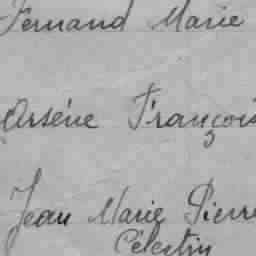 Fernand Marie
Arsène François
Jean Marie Pierre
Célestin